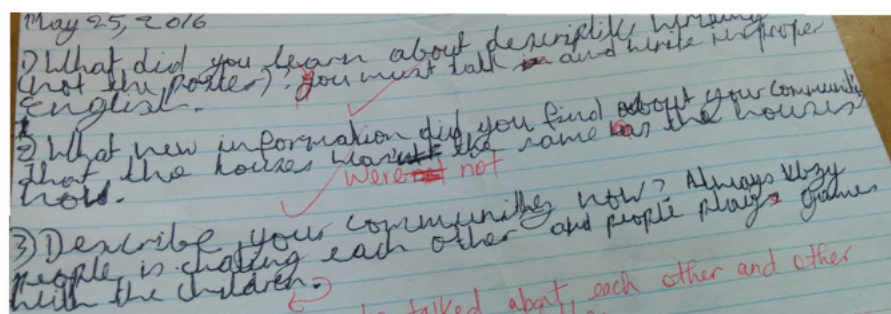 May 25, 2016
1) What did you learn about descriptive writing
(not the poster)? you must talk and write in proper
English.
2) What new information did you find about your community
that the houses the same as the houses
now.
were not
3) Describe your communities now? Always
people is chating each other and people plays games
with the children.
talked about each other and other